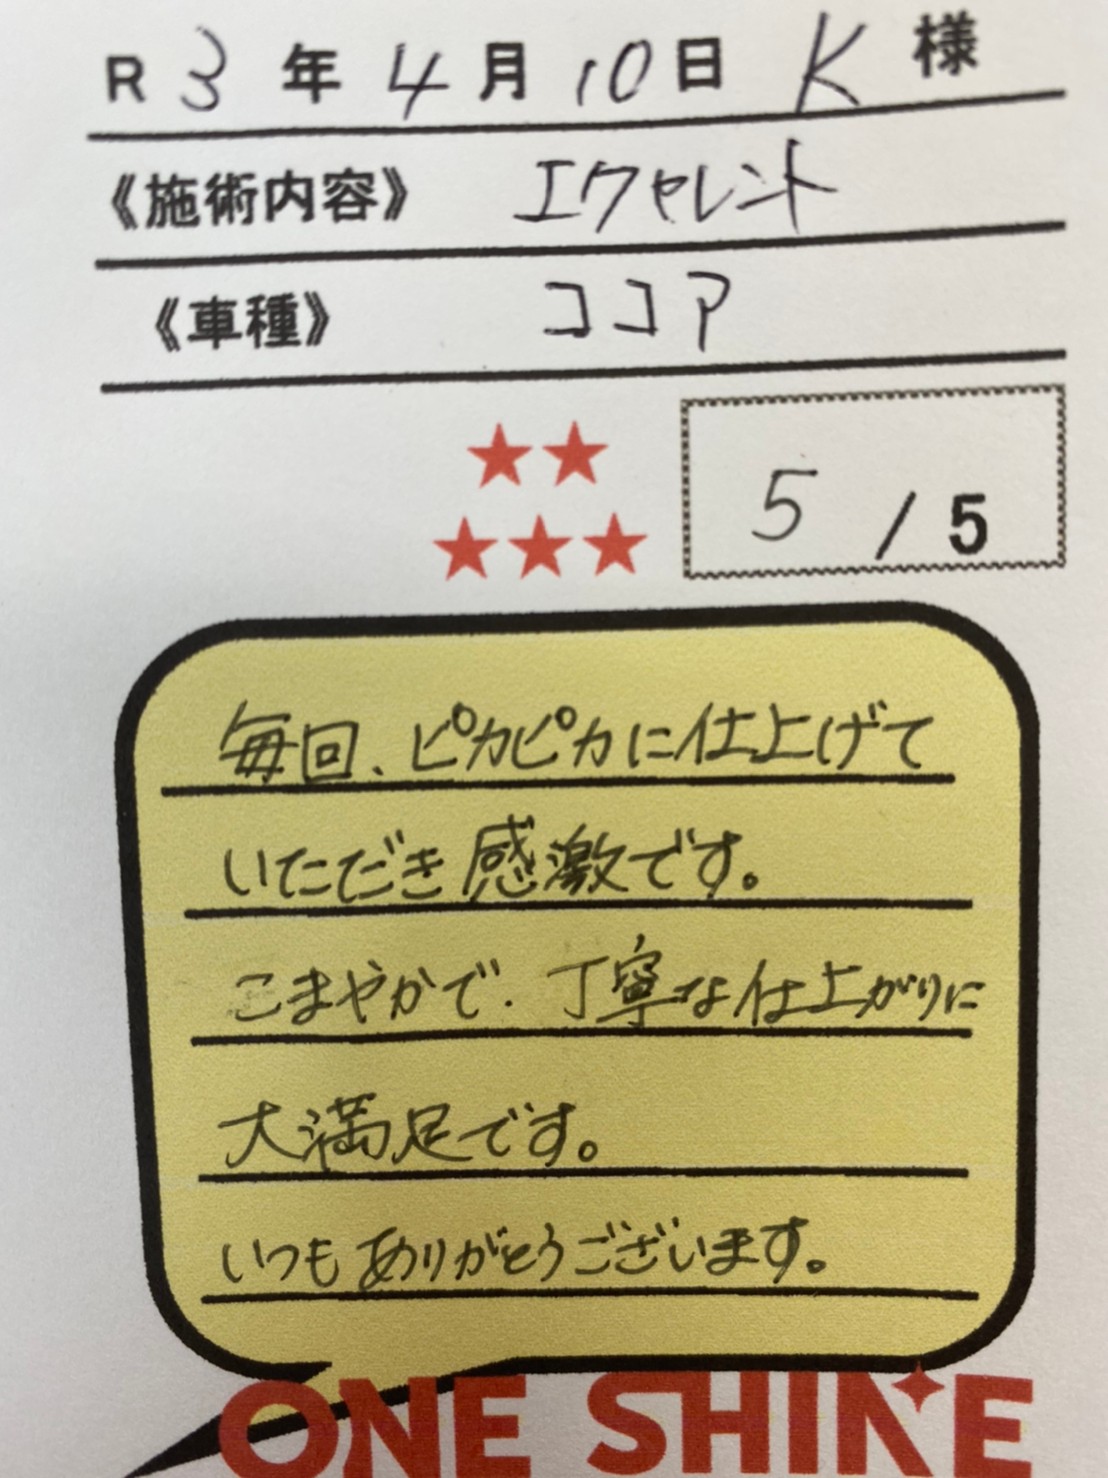 R 3 年 4 月 10 日 K 様
《施術内容》 エクセレント
《車種》 ココア
5 / 5
毎回、ピカピカに仕上げて
いただき感激です。
こまやかで、丁寧な仕上がりに
大満足です。
いつもありがとうございます。
ONE SHINE